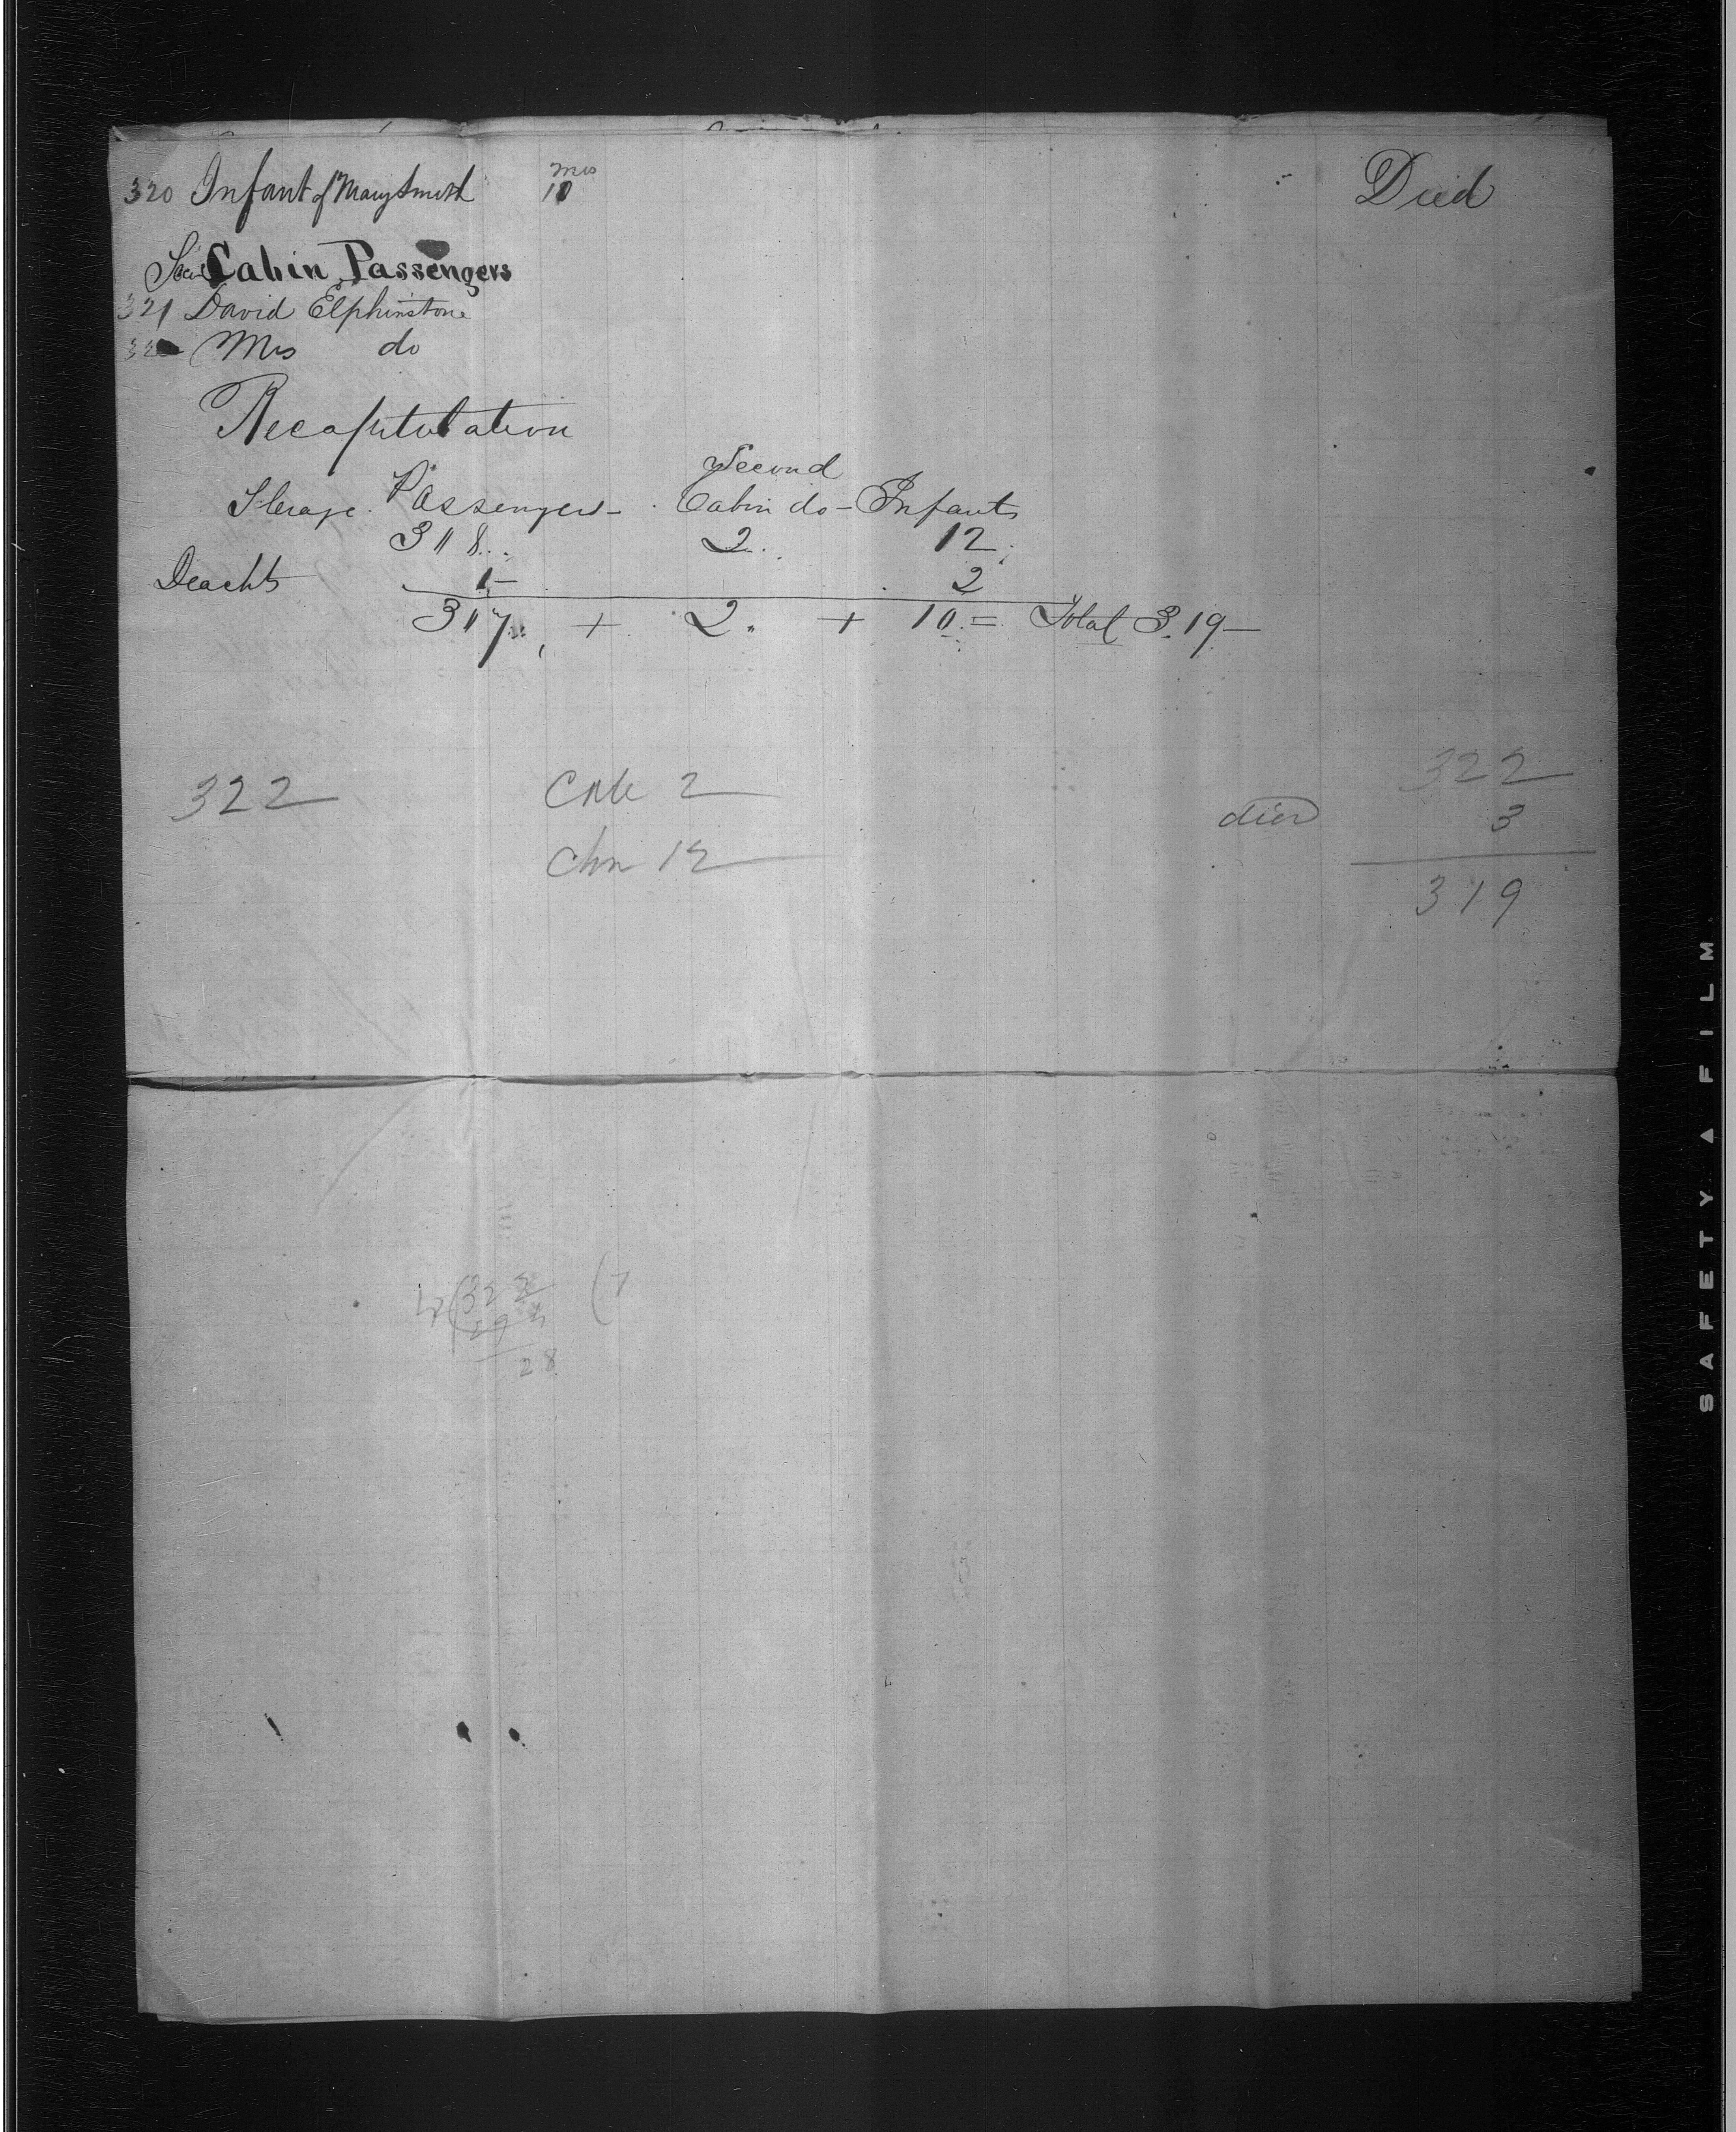 320 Infant of Mary Smith mos 10 Died
Cabin Passengers
321 David Elphinstone
32 Mrs do
Recapitulation
Sterage Passengers - Second Cabin do - Infants
318 2 12
Deaths 1 2
317 + 2 + 10 = Total 319
322 2 322
Chn 12 died 3
319
322 (7
28
SAFETY FILM